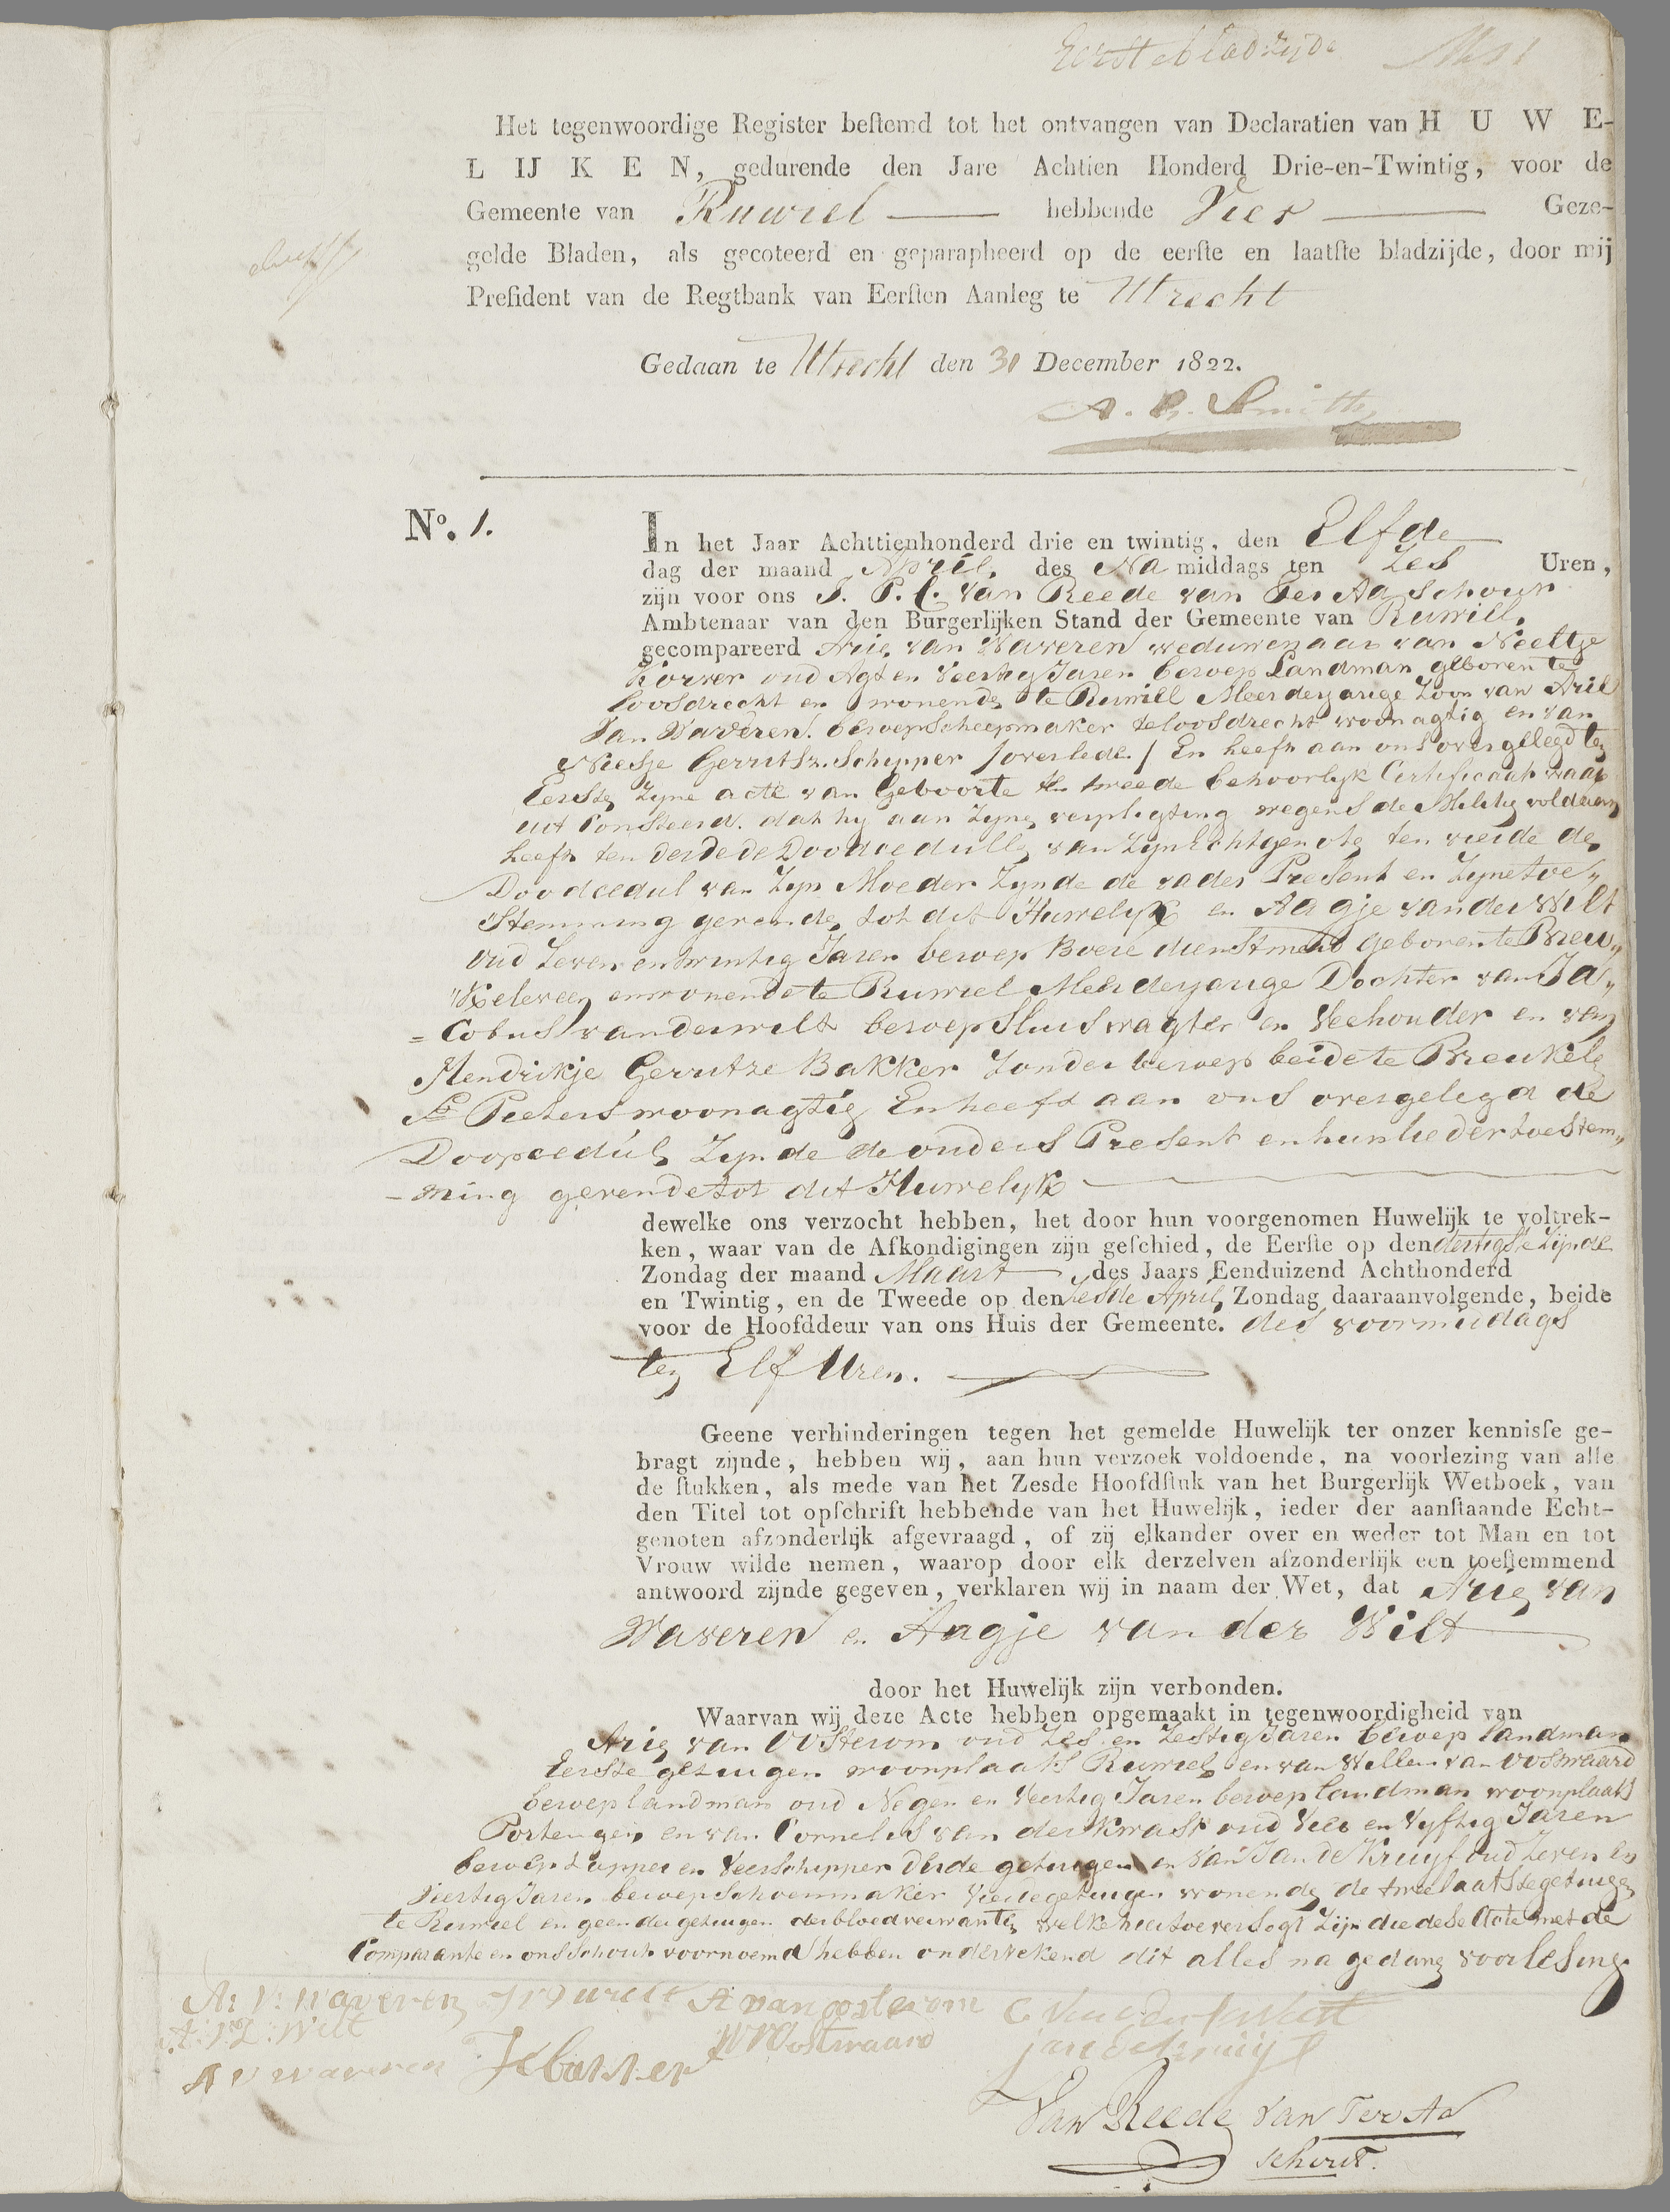 Eerste bladzijde
Het tegenwoordige Register bestemd tot het ontvangen van Declaratien van H U W E-
L IJ K E N, gedurende den Jare Achtien Honderd Drie-en-Twintig, voor de
Gemeente van Ruwiel hebbende Vier Geze-
gelde Bladen, als gecoteerd en geparapheerd op de eerste en laatste bladzijde, door mij
President van de Regtbank van Eersten Aanleg te Utrecht
Gedaan te Utrecht den 30 December 1822.
Smith
No. 1.
In het Jaar Achttienhonderd drie en twintig, den Elfde
dag der maand April, des Na middags ten Zes Uren,
zijn voor ons J. P. C. van Reede van Ter Aa Schout
Ambtenaar van den Burgerlijken Stand der Gemeente van Ruwiel.
gecompareerd Arie van Waveren weduwenaar van Neeltje
Korver oud Agt en Veertig Jaren beroep Landman geboren te
Loosdrecht en wonende te Ruwiel Meerderjarige Zoon van Arie
Van Waveren. beroep Scheepmaker te Loosdrecht woonagtig en van
Niesje Gerritsz. Schipper /overlede./ En heeft aan ons overgelegd ten
Eerste Zyne acte van Geboorte ten tweede behoorlyk Certificaat waar
uit Consteerd. dat hy aan Zyne verpligting wegens de Militie voldaan
heeft ten derde de Doodcedulle van Zyn Echtgenote ten vierde de
Doodcedul van Zyn Moeder Zynde de vader Present en Zyne toe„
Stemming gevende tot dit Huwelyk en Aagje van der Wilt
oud Zeven en twintig Jaren beroep Boere dienstmeid geboren te Breu„
„Keleveen en wonende te Ruwiel Meerderjarige Dochter van Ja„
=Cobus van der Wilt beroep Sluiswagter en Veehouder en van
Hendrikje Gerritze Bakker Zonder beroep beide te Breukele
St Pieters woonagtig En heeft aan ons overgelegd de
Doopcedul Zynde de ouders Present en hunlieder toestem„
-ming gevende tot dit Huwelyk
dewelke ons verzocht hebben, het door hun voorgenomen Huwelijk te voltrek-
ken, waar van de Afkondigingen zijn geschied, de Eerste op den dertigste Zijnde
Zondag der maand Maart des Jaars Eenduizend Achthonderd
en Twintig, en de Tweede op den Zesde April, Zondag daaraanvolgende, beide
voor de Hoofddeur van ons Huis der Gemeente. des voormiddags
ten Elf Uren.
Geene verhinderingen tegen het gemelde Huwelijk ter onzer kennisse ge-
bragt zijnde, hebben wij, aan hun verzoek voldoende, na voorlezing van alle
de stukken, als mede van het Zesde Hoofdstuk van het Burgerlijk Wetboek, van
den Titel tot opschrift hebbende van het Huwelijk, ieder der aanstaande Echt-
genoten afzonderlijk afgevraagd, of zij elkander over en weder tot Man en tot
Vrouw wilde nemen, waarop door elk derzelven afzonderlijk een toestemmend
antwoord zijnde gegeven, verklaren wij in naam der Wet, dat Arie van
Waveren en Aagje van der Wilt
door het Huwelijk zijn verbonden.
Waarvan wij deze Acte hebben opgemaakt in tegenwoordigheid van
Arie van Oosterom oud Zes en Zestig Jaren beroep landman
Eerste getuigen woonplaats Ruwiel en van Willem van Oostwaard
beroep landman oud Negen en Veertig Jaren beroep landman woonplaats
Portengen en van Cornelis van der Kwast oud Vier en Vyftig Jaren
beroep Tapper en Veerschipper Derde getuigen en van Jan de Kruyf oud Zeven en
Veertig Jaren beroep Schoenmaker Vierde getuigen wonende de twee laatste getuigen
te Ruwiel en geen der getuigen der bloedverwanten welke hiertoe versogt Zijn die dese Acte met de
Comparante en ons Schout voornoemd hebben ondertekend dit alles na gedane voorlesing
A: V: Waveren A van oosterom
A: V: D: Wilt W V Oostwaard jan de kruijf
A v waveren H bakker
Van Reede van Ter Aa
Schout.